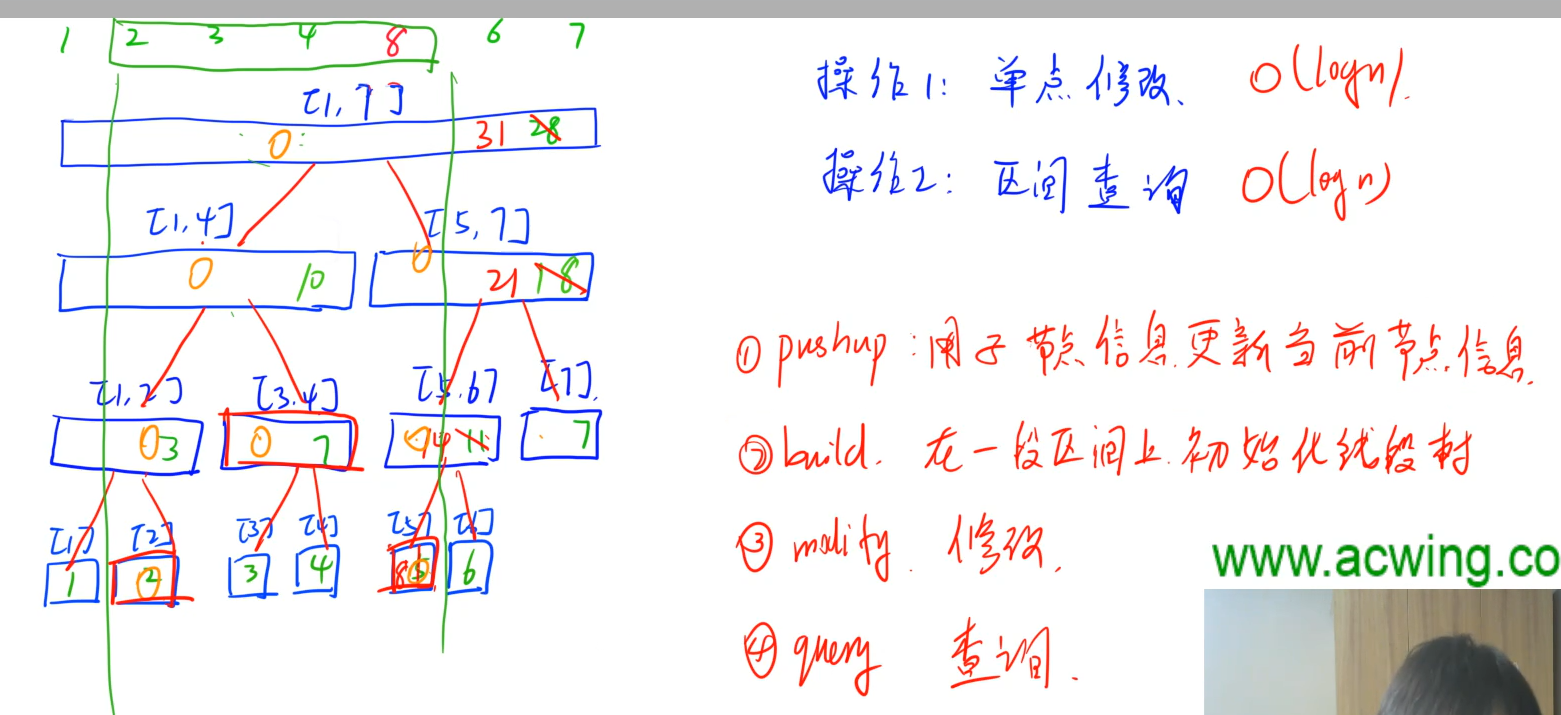 1 2 3 4 8 6 7
[1,7]
0 31 28
[1,4] [5,7]
0 10 0 21 18
[1,2] [3,4] [5,6] [7]
0 3 0 7 14 11 7
[1] [2] [3] [4] [5] [6]
1 2 0 3 4 8 0 6
操作1: 单点修改、 O(logn).
操作2: 区间查询 O(logn)
① pushup: 用子节点信息更新当前节点信息.
② build. 在一段区间上初始化线段树
③ modify 修改.
④ query 查询.
www.acwing.co